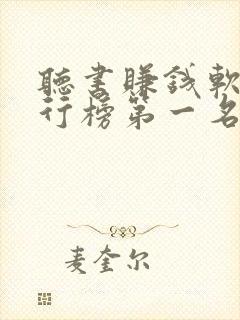 聽書賺錢軟
行榜第一名
麦奎尔